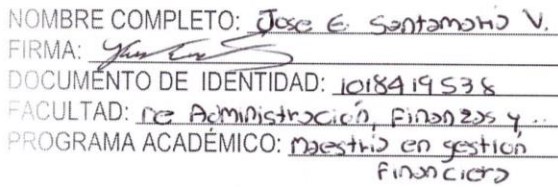 NOMBRE COMPLETO: Jose E. Santamaria V.
FIRMA:
DOCUMENTO DE IDENTIDAD: 1018419538
FACULTAD: De Administración, Finanzas y ..
PROGRAMA ACADÉMICO: Maestria en gestión
Financiera